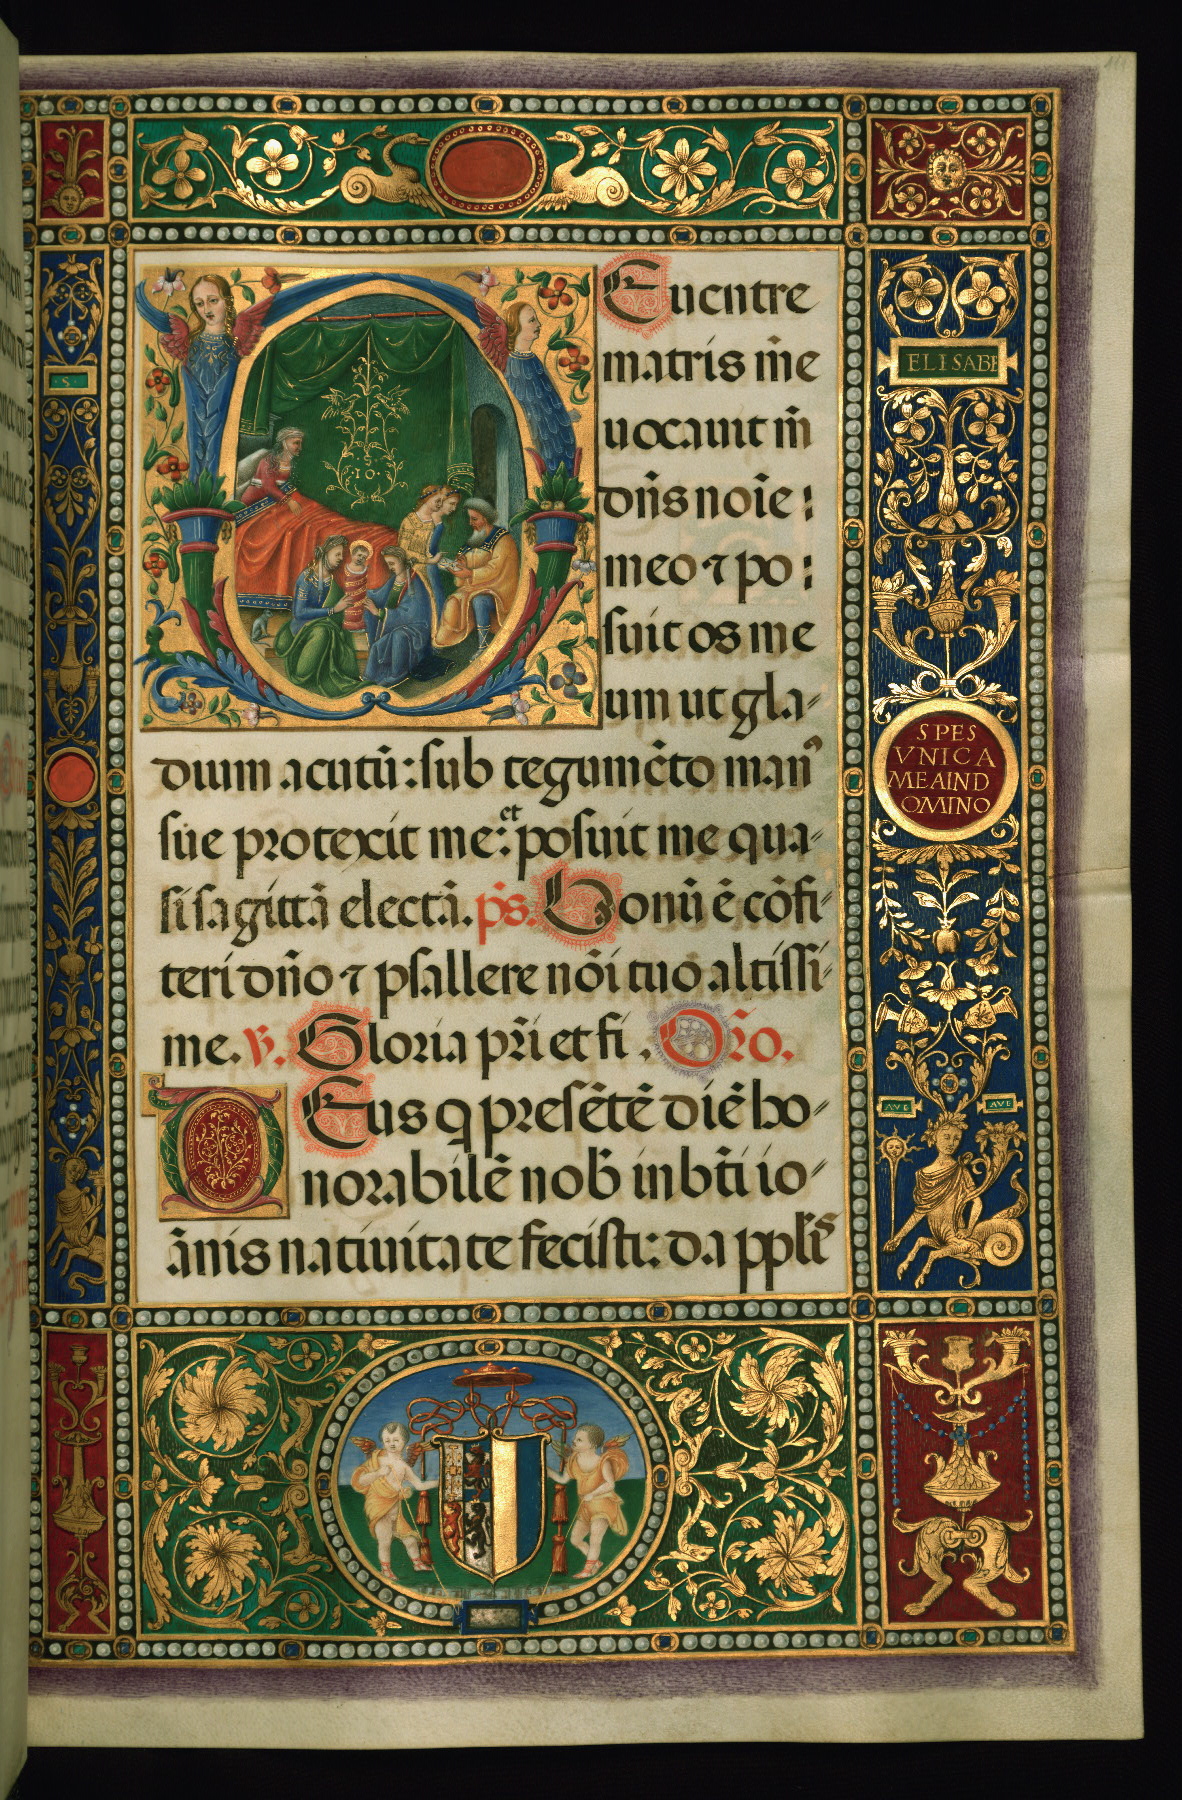 D Eucntre
matris m̄e
uocauit m̄
dn̄s noīe:
meo ⁊ po:
suit os me
um ut gla-
dium acutū: sub tegumēto man᷒
sūe protexit me: et posuit me qua-
si sagittā electā. p̄s. Bonū ē cōfi-
teri dn̄o ⁊ psallere nōi tuo altissi-
me. V. Gloria pr̄i et fi . Or̄o.
D Eus q̄ presētē diē ho-
norabilē nob̄ in bt̄i io-
ānis natiuitate fecisti: da pplīs
ELISABE
SPES
VNICA
MEA IN D
OMINO
AVE
AVE
S
S
·10·